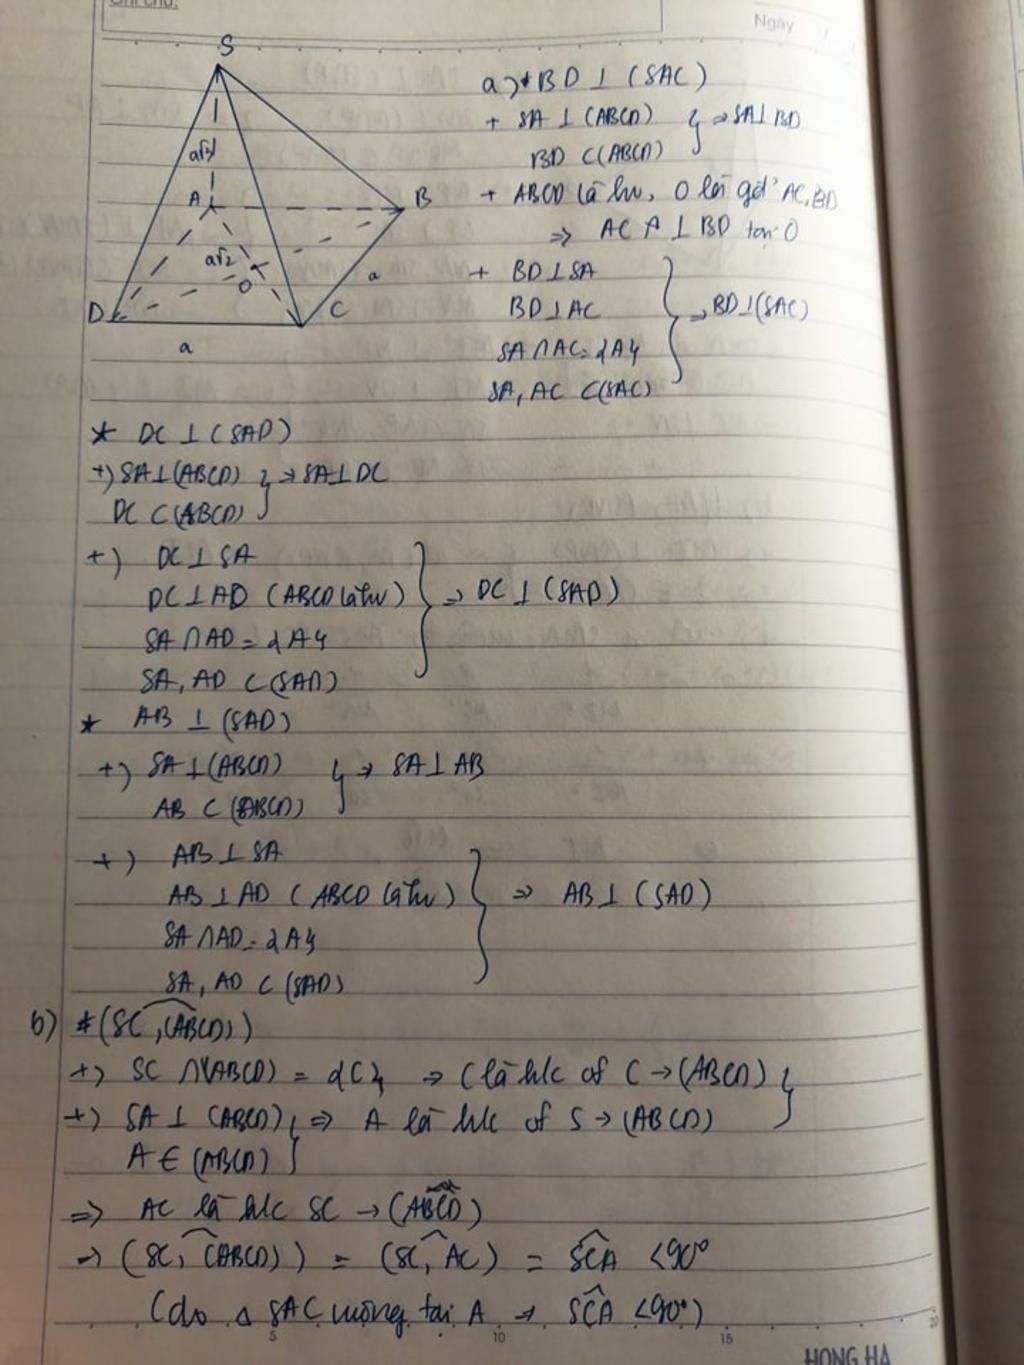 Ghi chú:
Ngày
S
a) * BD ⊥ (SAC)
+ SA ⊥ (ABCD) } ⇒ SA ⊥ BD
BD ⊂ (ABCD)
+ ABCD là hv, O là gđ' AC, BD
⇒ AC ⊥ BD tại O
+ BD ⊥ SA
BD ⊥ AC } ⇒ BD ⊥ (SAC)
SA ∩ AC = {A}
SA, AC ⊂ (SAC)
A
B
a√2
O
a
D
C
a
* DC ⊥ (SAD)
+) SA ⊥ (ABCD) } ⇒ SA ⊥ DC
DC ⊂ (ABCD)
+) DC ⊥ SA
DC ⊥ AD (ABCD là hv) } ⇒ DC ⊥ (SAD)
SA ∩ AD = {A}
SA, AD ⊂ (SAD)
* AB ⊥ (SAD)
+) SA ⊥ (ABCD) } ⇒ SA ⊥ AB
AB ⊂ (ABCD)
+) AB ⊥ SA
AB ⊥ AD (ABCD là hv) } ⇒ AB ⊥ (SAD)
SA ∩ AD = {A}
SA, AD ⊂ (SAD)
b) * (SC, (ABCD))
+) SC ∩ (ABCD) = {C} ⇒ C là h/c of C → (ABCD) }
+) SA ⊥ (ABCD) } ⇒ A là h/c of S → (ABCD)
A ∈ (ABCD)
⇒ AC là h/c SC → (ABCD)
⇒ (SC, (ABCD)) = (SC, AC) = SCA < 90°
(do Δ SAC vuông tại A ⇒ SCA < 90°)
5 10 15 20
HONG HA